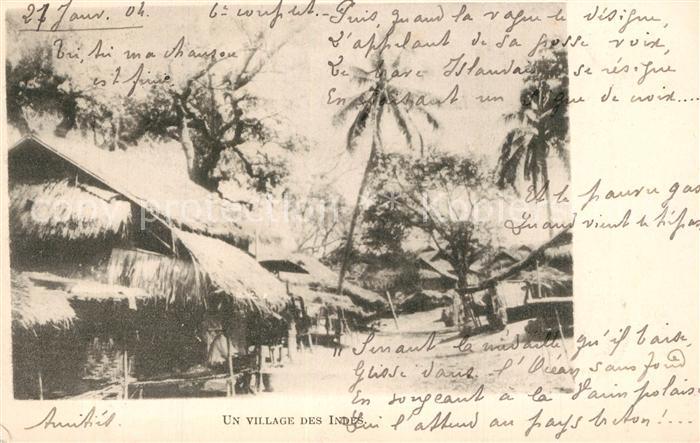 27 Janv. 04.
6e couplet.- Puis, quand la vague le désigne,
L'appelant de sa grosse voix,
Le brave Islandais se résigne
En faisant un signe de croix....
Et le pauvre gas
Quand vient le trépas
Serrant la médaille qu'il baise,
Glisse dans l'Océan sans fond
En songeant à la Paimpolaise
Qui l'attend au pays breton!....
ma chanson
est finie.
Amitiés.
UN VILLAGE DES INDES
copy protection